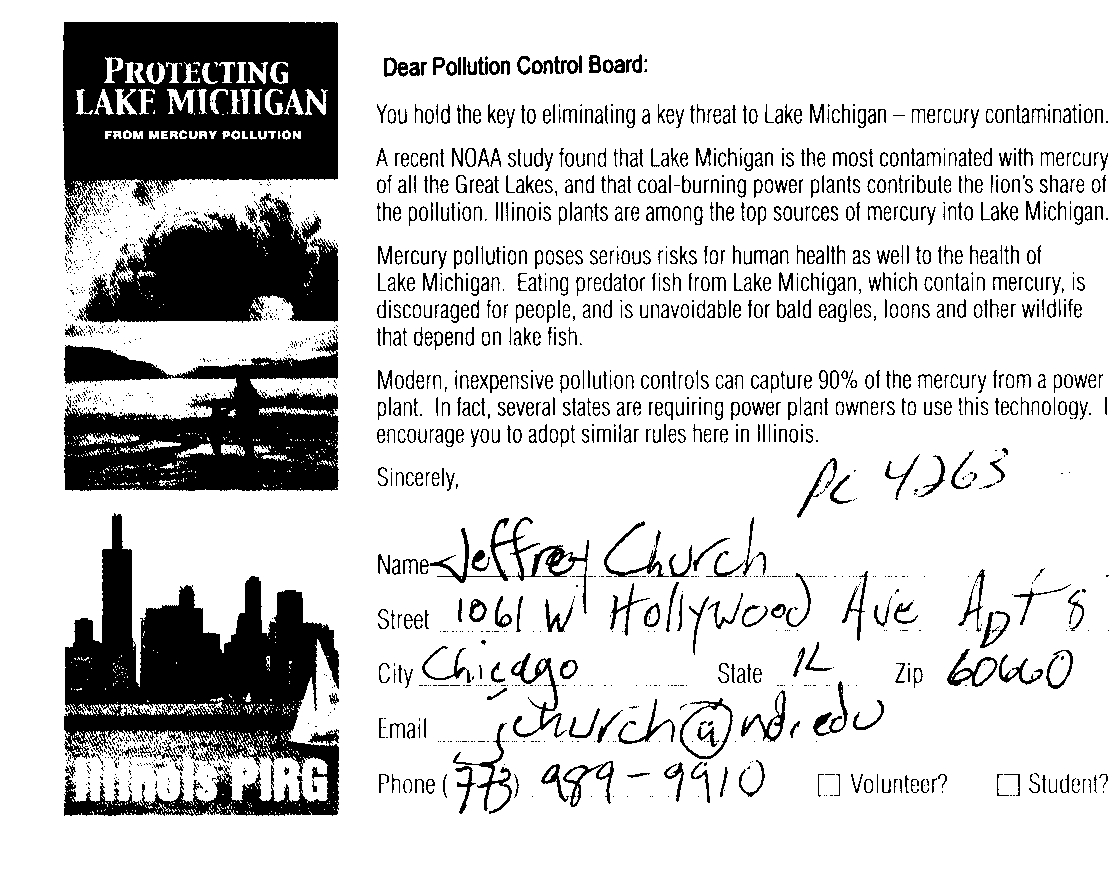 PROTECTING
LAKE MICHIGAN
FROM MERCURY POLLUTION
Illinois PIRG
Dear Pollution Control Board:
You hold the key to eliminating a key threat to Lake Michigan – mercury contamination.
A recent NOAA study found that Lake Michigan is the most contaminated with mercury
of all the Great Lakes, and that coal-burning power plants contribute the lion's share of
the pollution. Illinois plants are among the top sources of mercury into Lake Michigan.
Mercury pollution poses serious risks for human health as well to the health of
Lake Michigan. Eating predator fish from Lake Michigan, which contain mercury, is
discouraged for people, and is unavoidable for bald eagles, loons and other wildlife
that depend on lake fish.
Modern, inexpensive pollution controls can capture 90% of the mercury from a power
plant. In fact, several states are requiring power plant owners to use this technology. I
encourage you to adopt similar rules here in Illinois.
Sincerely,
PC 4263
Name Jeffrey Church
Street 1061 W Hollywood Ave Apt 8
City Chicago State IL Zip 60660
Email jchurch@ndr.edu
Phone (773) 989-9910 Volunteer? Student?